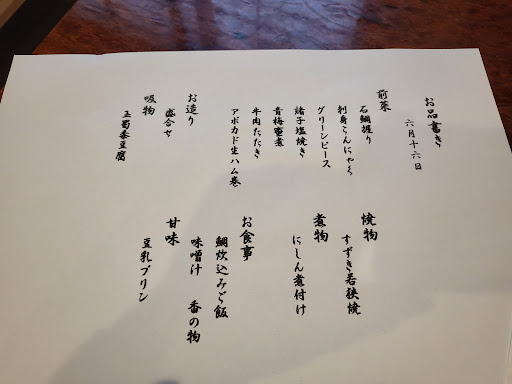 お品書き
六月十六日
前菜
石鯛握り
刺身こんにゃく
グリーンピース
諸子塩焼き
青梅蜜煮
牛肉たたき
アボカド生ハム巻
お造り
盛合せ
吸物
玉蜀黍豆腐
焼物
すずき若狭焼
煮物
にしん煮付け
お食事
鯛炊込みご飯
味噌汁 香の物
甘味
豆乳プリン